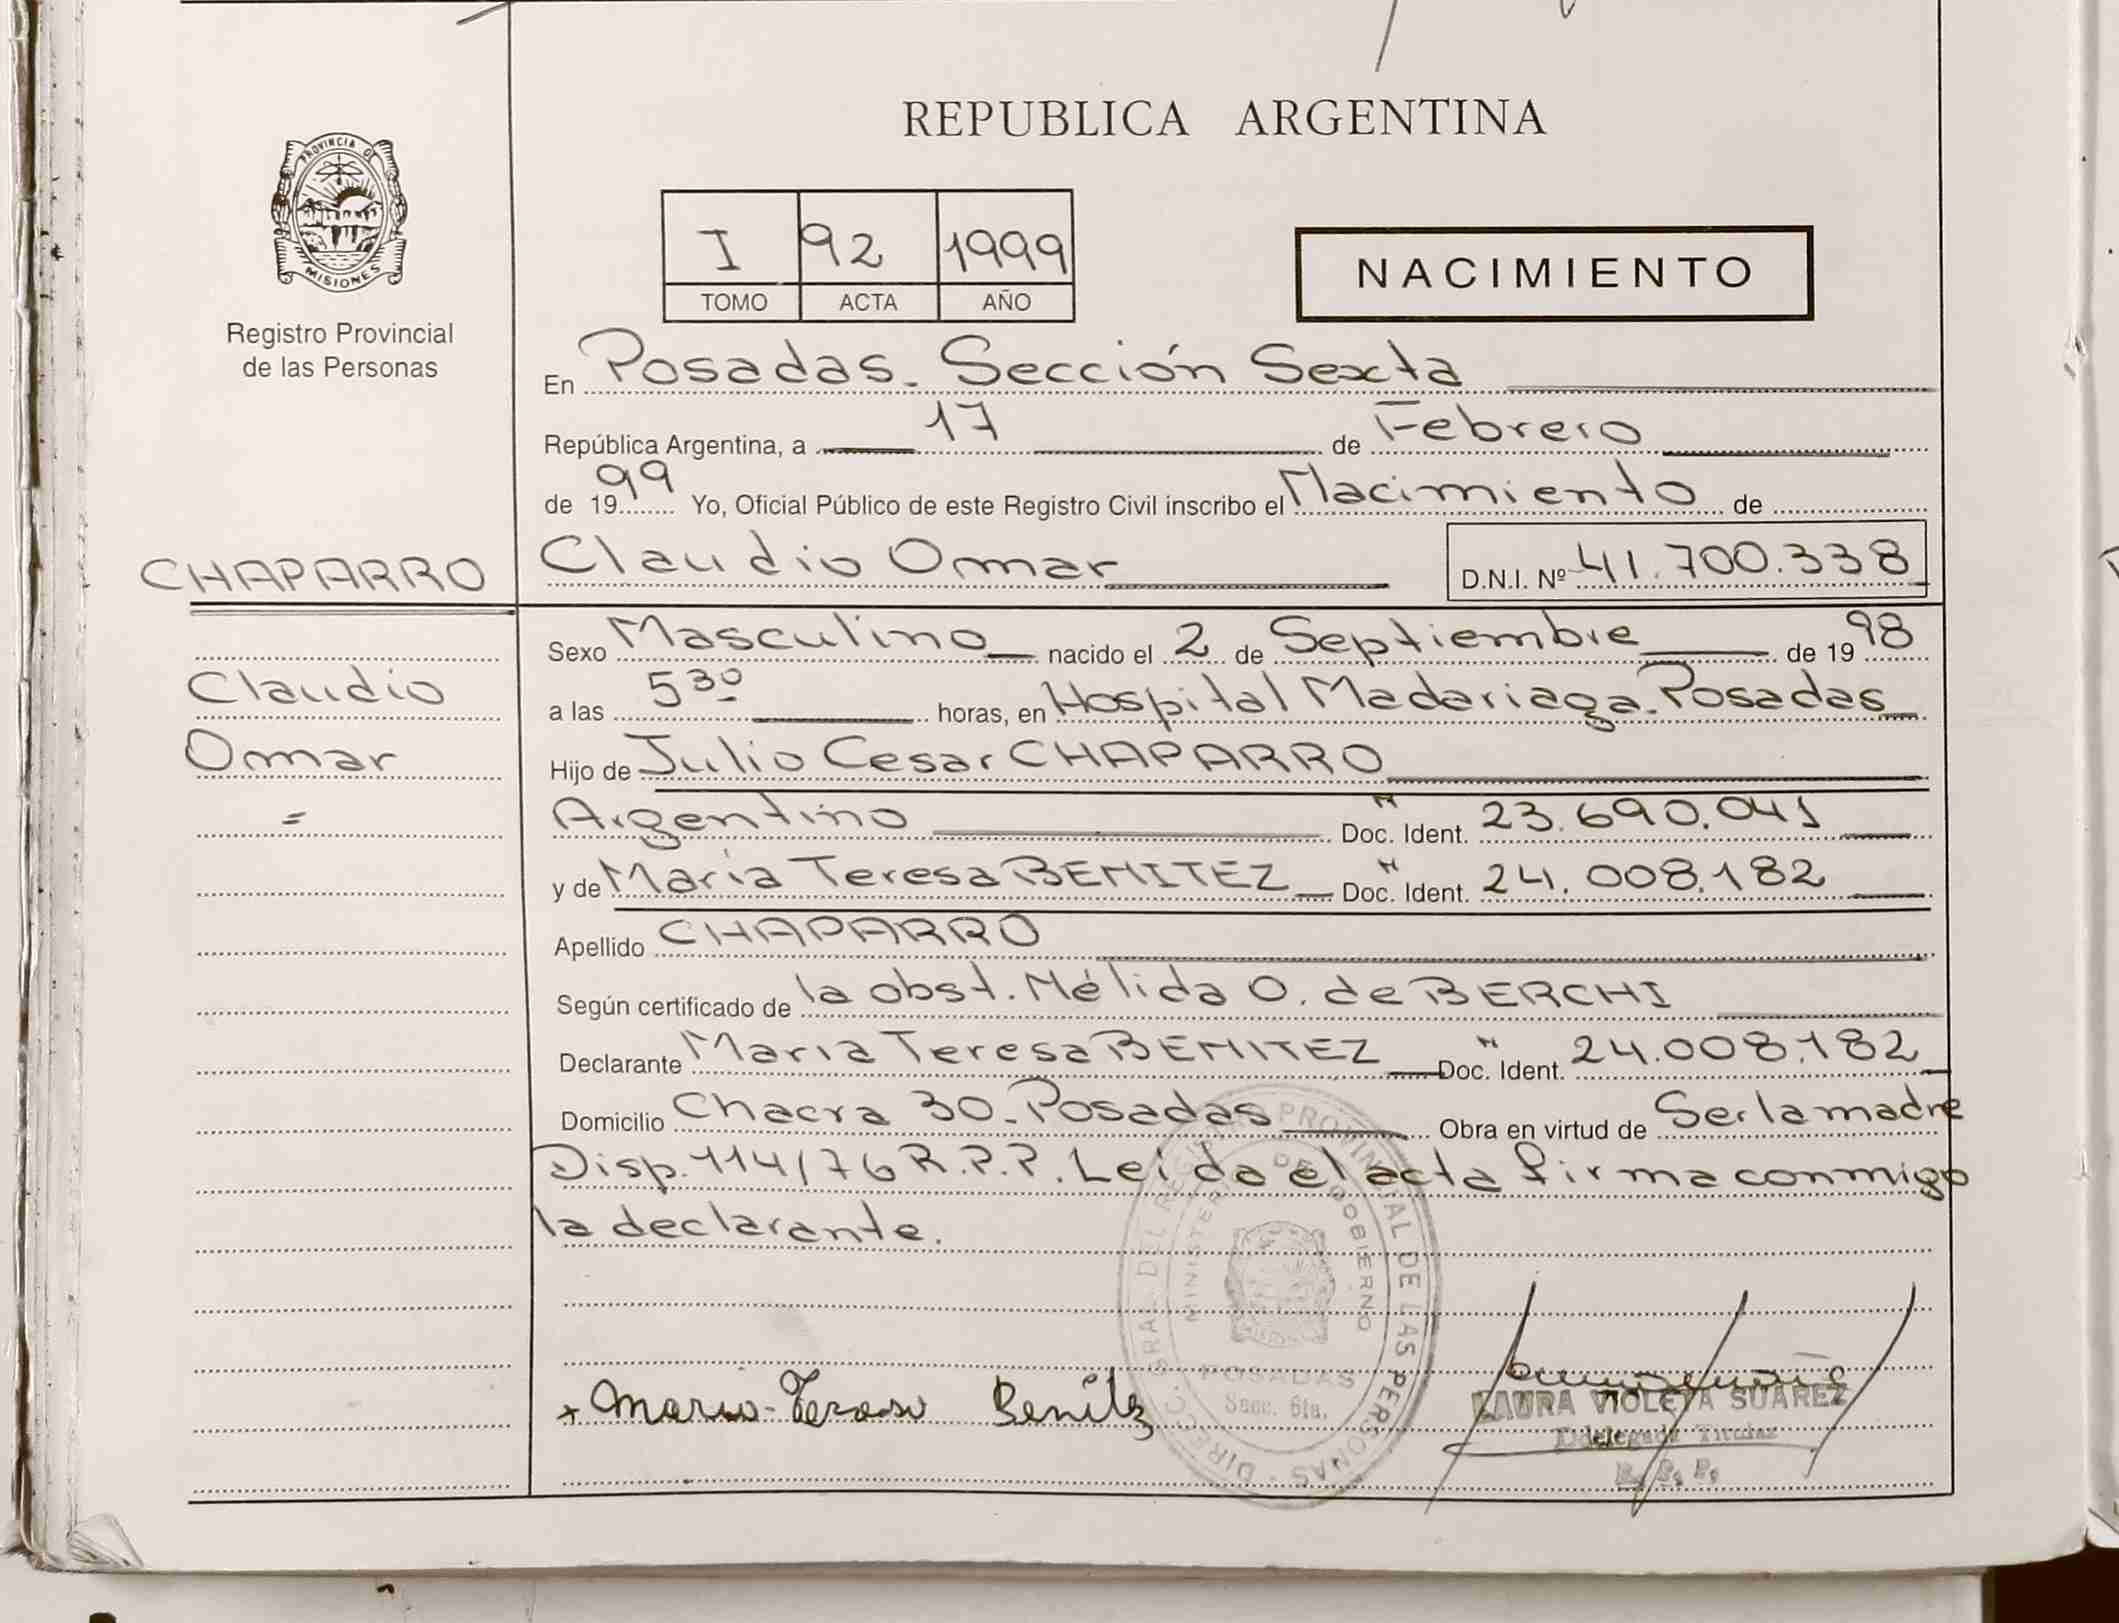 REPUBLICA ARGENTINA
PROVINCIA DE
MISIONES
Registro Provincial
de las Personas
I 92 1999
TOMO ACTA AÑO
NACIMIENTO
En Posadas. Sección Sexta
República Argentina, a 17 de Febrero
de 1999 Yo, Oficial Público de este Registro Civil inscribo el Nacimiento de
CHAPARRO Claudio Omar D.N.I. Nº 41.700.338
Sexo Masculino nacido el 2 de Septiembre de 1998
Claudio
a las 5 30 horas, en Hospital Madariaga. Posadas
Omar
Hijo de Julio Cesar CHAPARRO
=
Argentino Doc. Ident. " 23.690.041
y de María Teresa BENITEZ Doc. Ident. " 24.008.182
Apellido CHAPARRO
Según certificado de la obst. Nélida O. de BERCHI
Declarante María Teresa BENITEZ Doc. Ident. " 24.008.182
Domicilio Chacra 30 - Posadas Obra en virtud de Ser la madre
Disp. 114/76 R.P.P. Leida el acta firma conmigo
la declarante.
DIRECC. GRAL. DEL REGISTRO PROVINCIAL DE LAS PERSONAS
MINISTERIO DE GOBIERNO
POSADAS
Secc. 6ta.
+ Maria Teresa Benitez
LAURA VIOLETA SUAREZ
Delegada Titular
R. P. P.